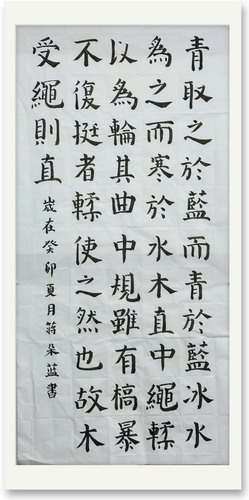 青取之於藍而青於藍冰水
為之而寒於水木直中繩輮
以為輪其曲中規雖有槁暴
不復挺者輮使之然也故木
受繩則直
歲在癸卯夏月蔣朵藍書